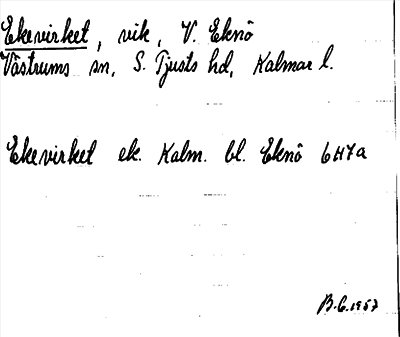 Ekevirket, vik, V. Eknö
Västrums sn, S. Tjusts hd, Kalmar l.
Ekevirket ek. Kalm. bl. Eknö 6H7a
B.G. 1957